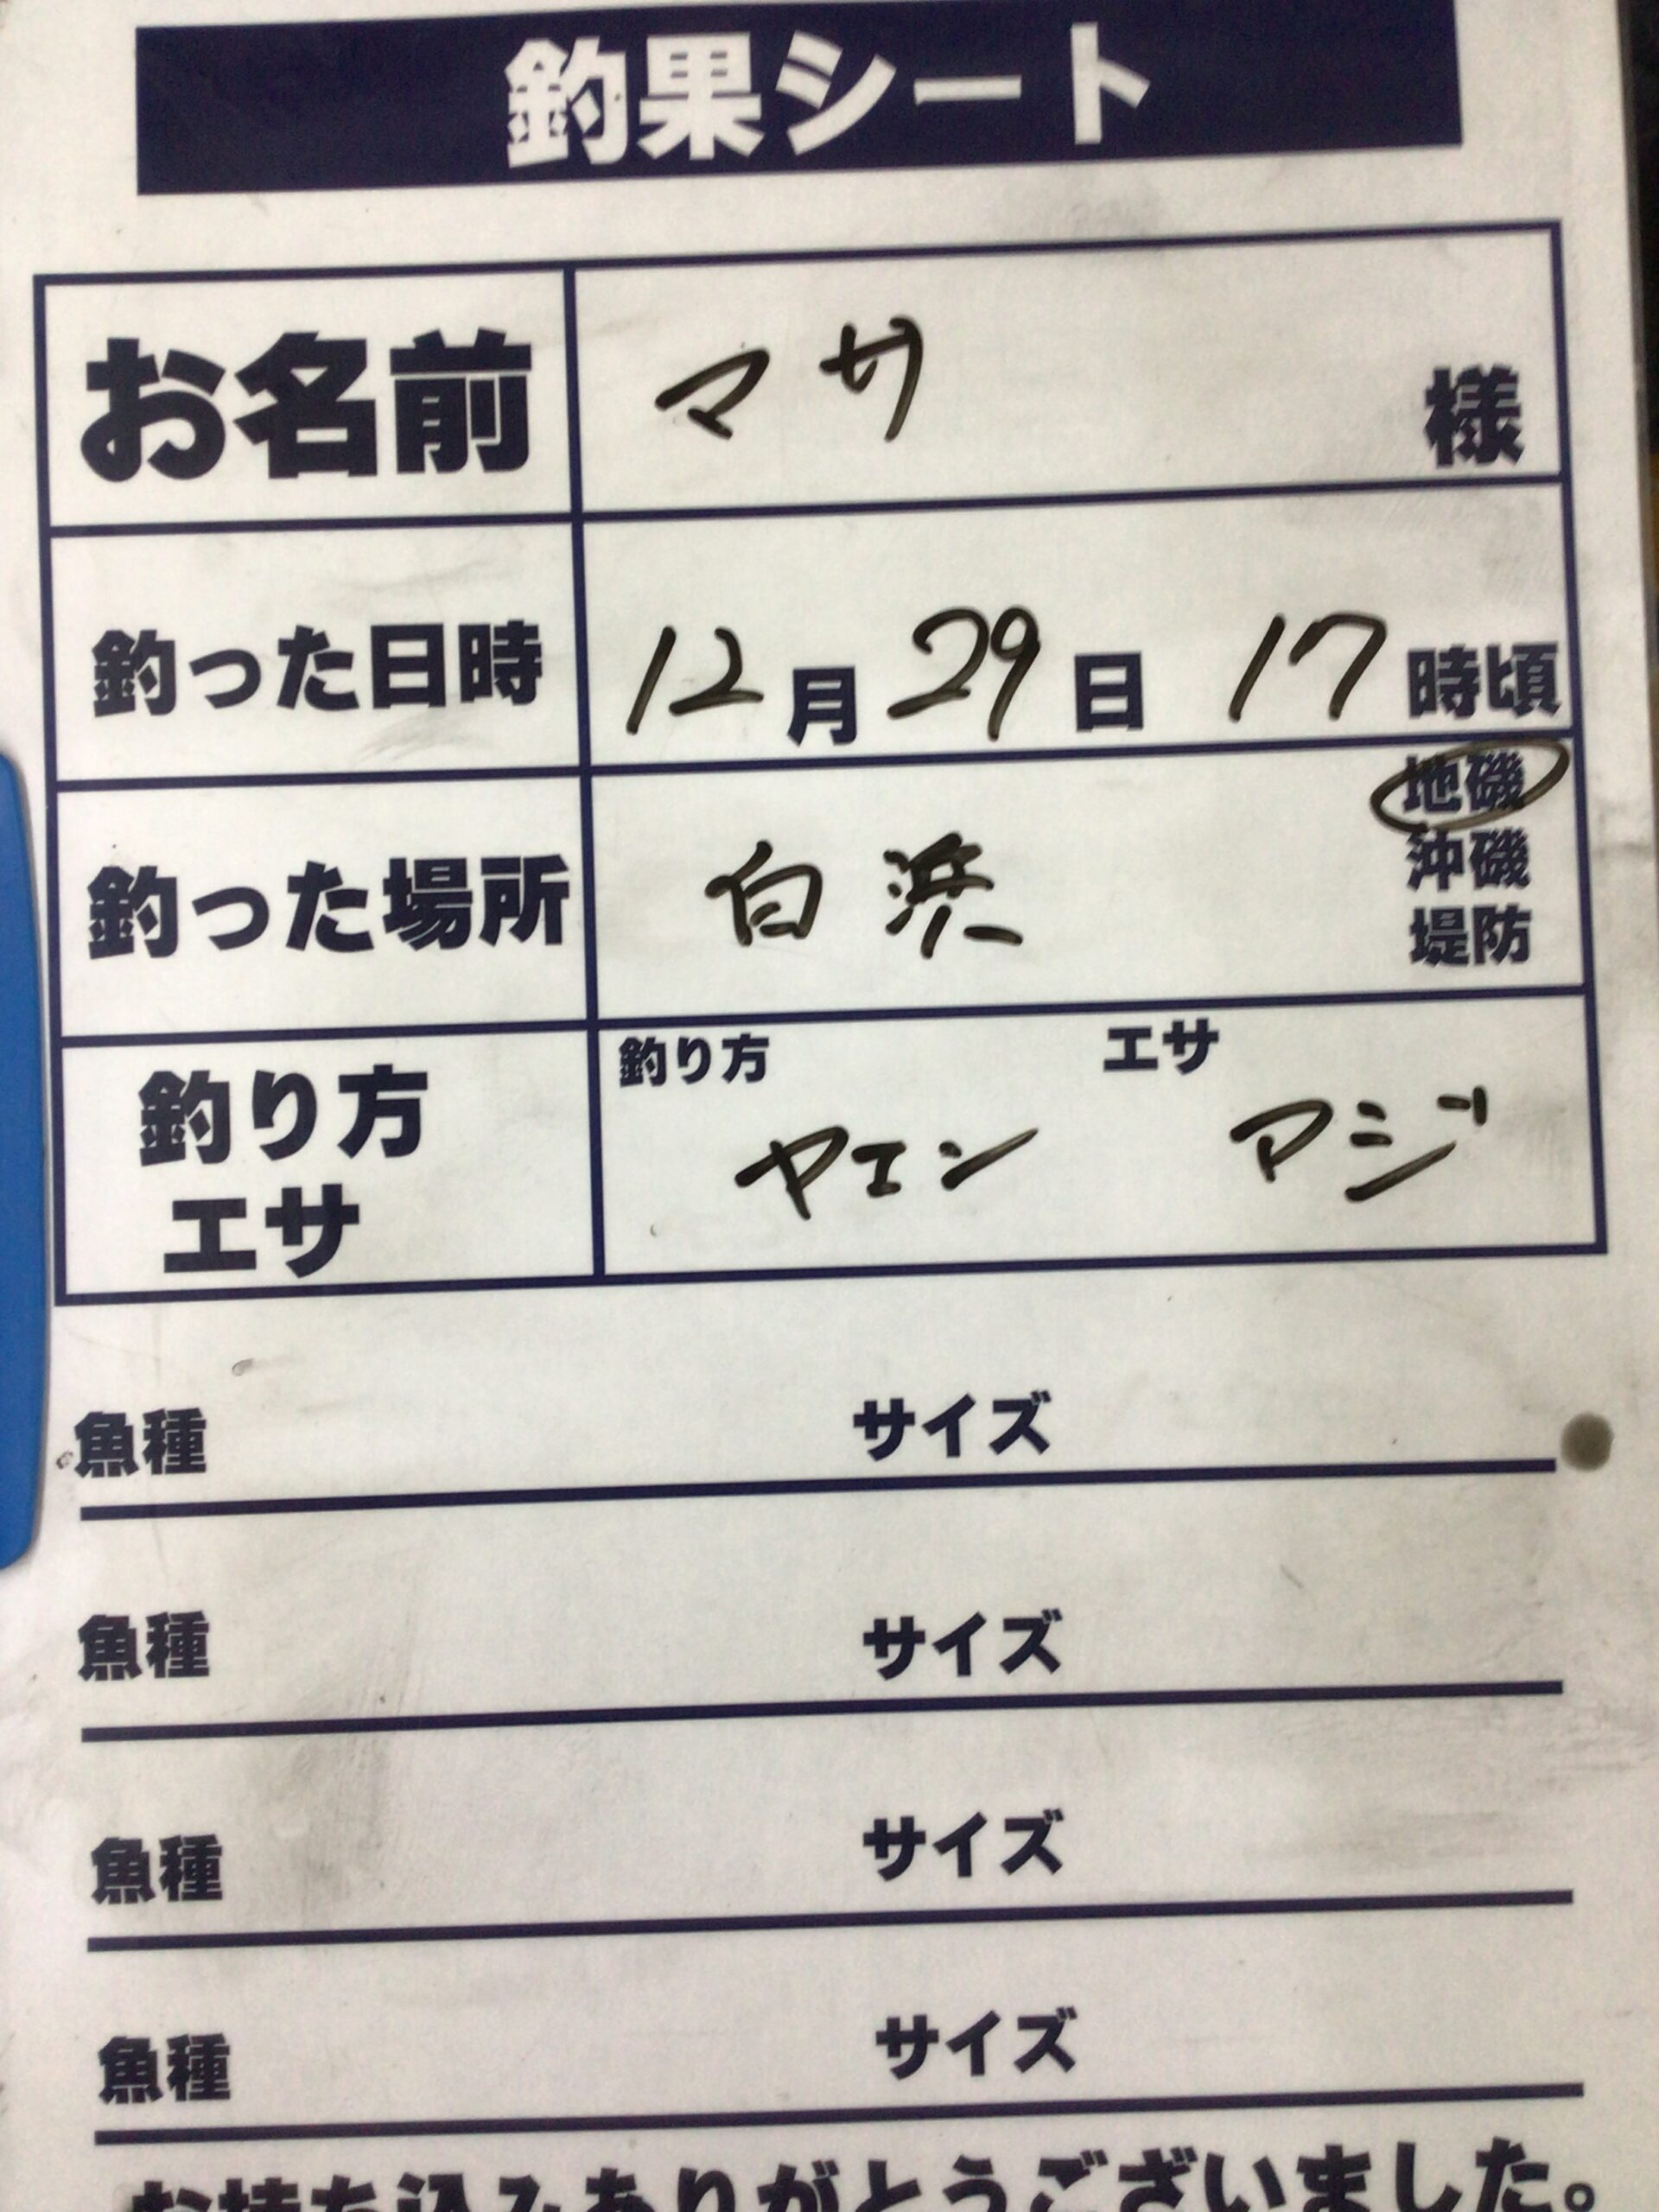 釣果シート
お名前 マサ 様
釣った日時 12月29日 17時頃
釣った場所 白浜 地磯
沖磯
堤防
釣り方 エサ
釣り方
エサ
ヤエン アジ
魚種 サイズ
魚種 サイズ
魚種 サイズ
魚種 サイズ
お持ち込みありがとうございました。